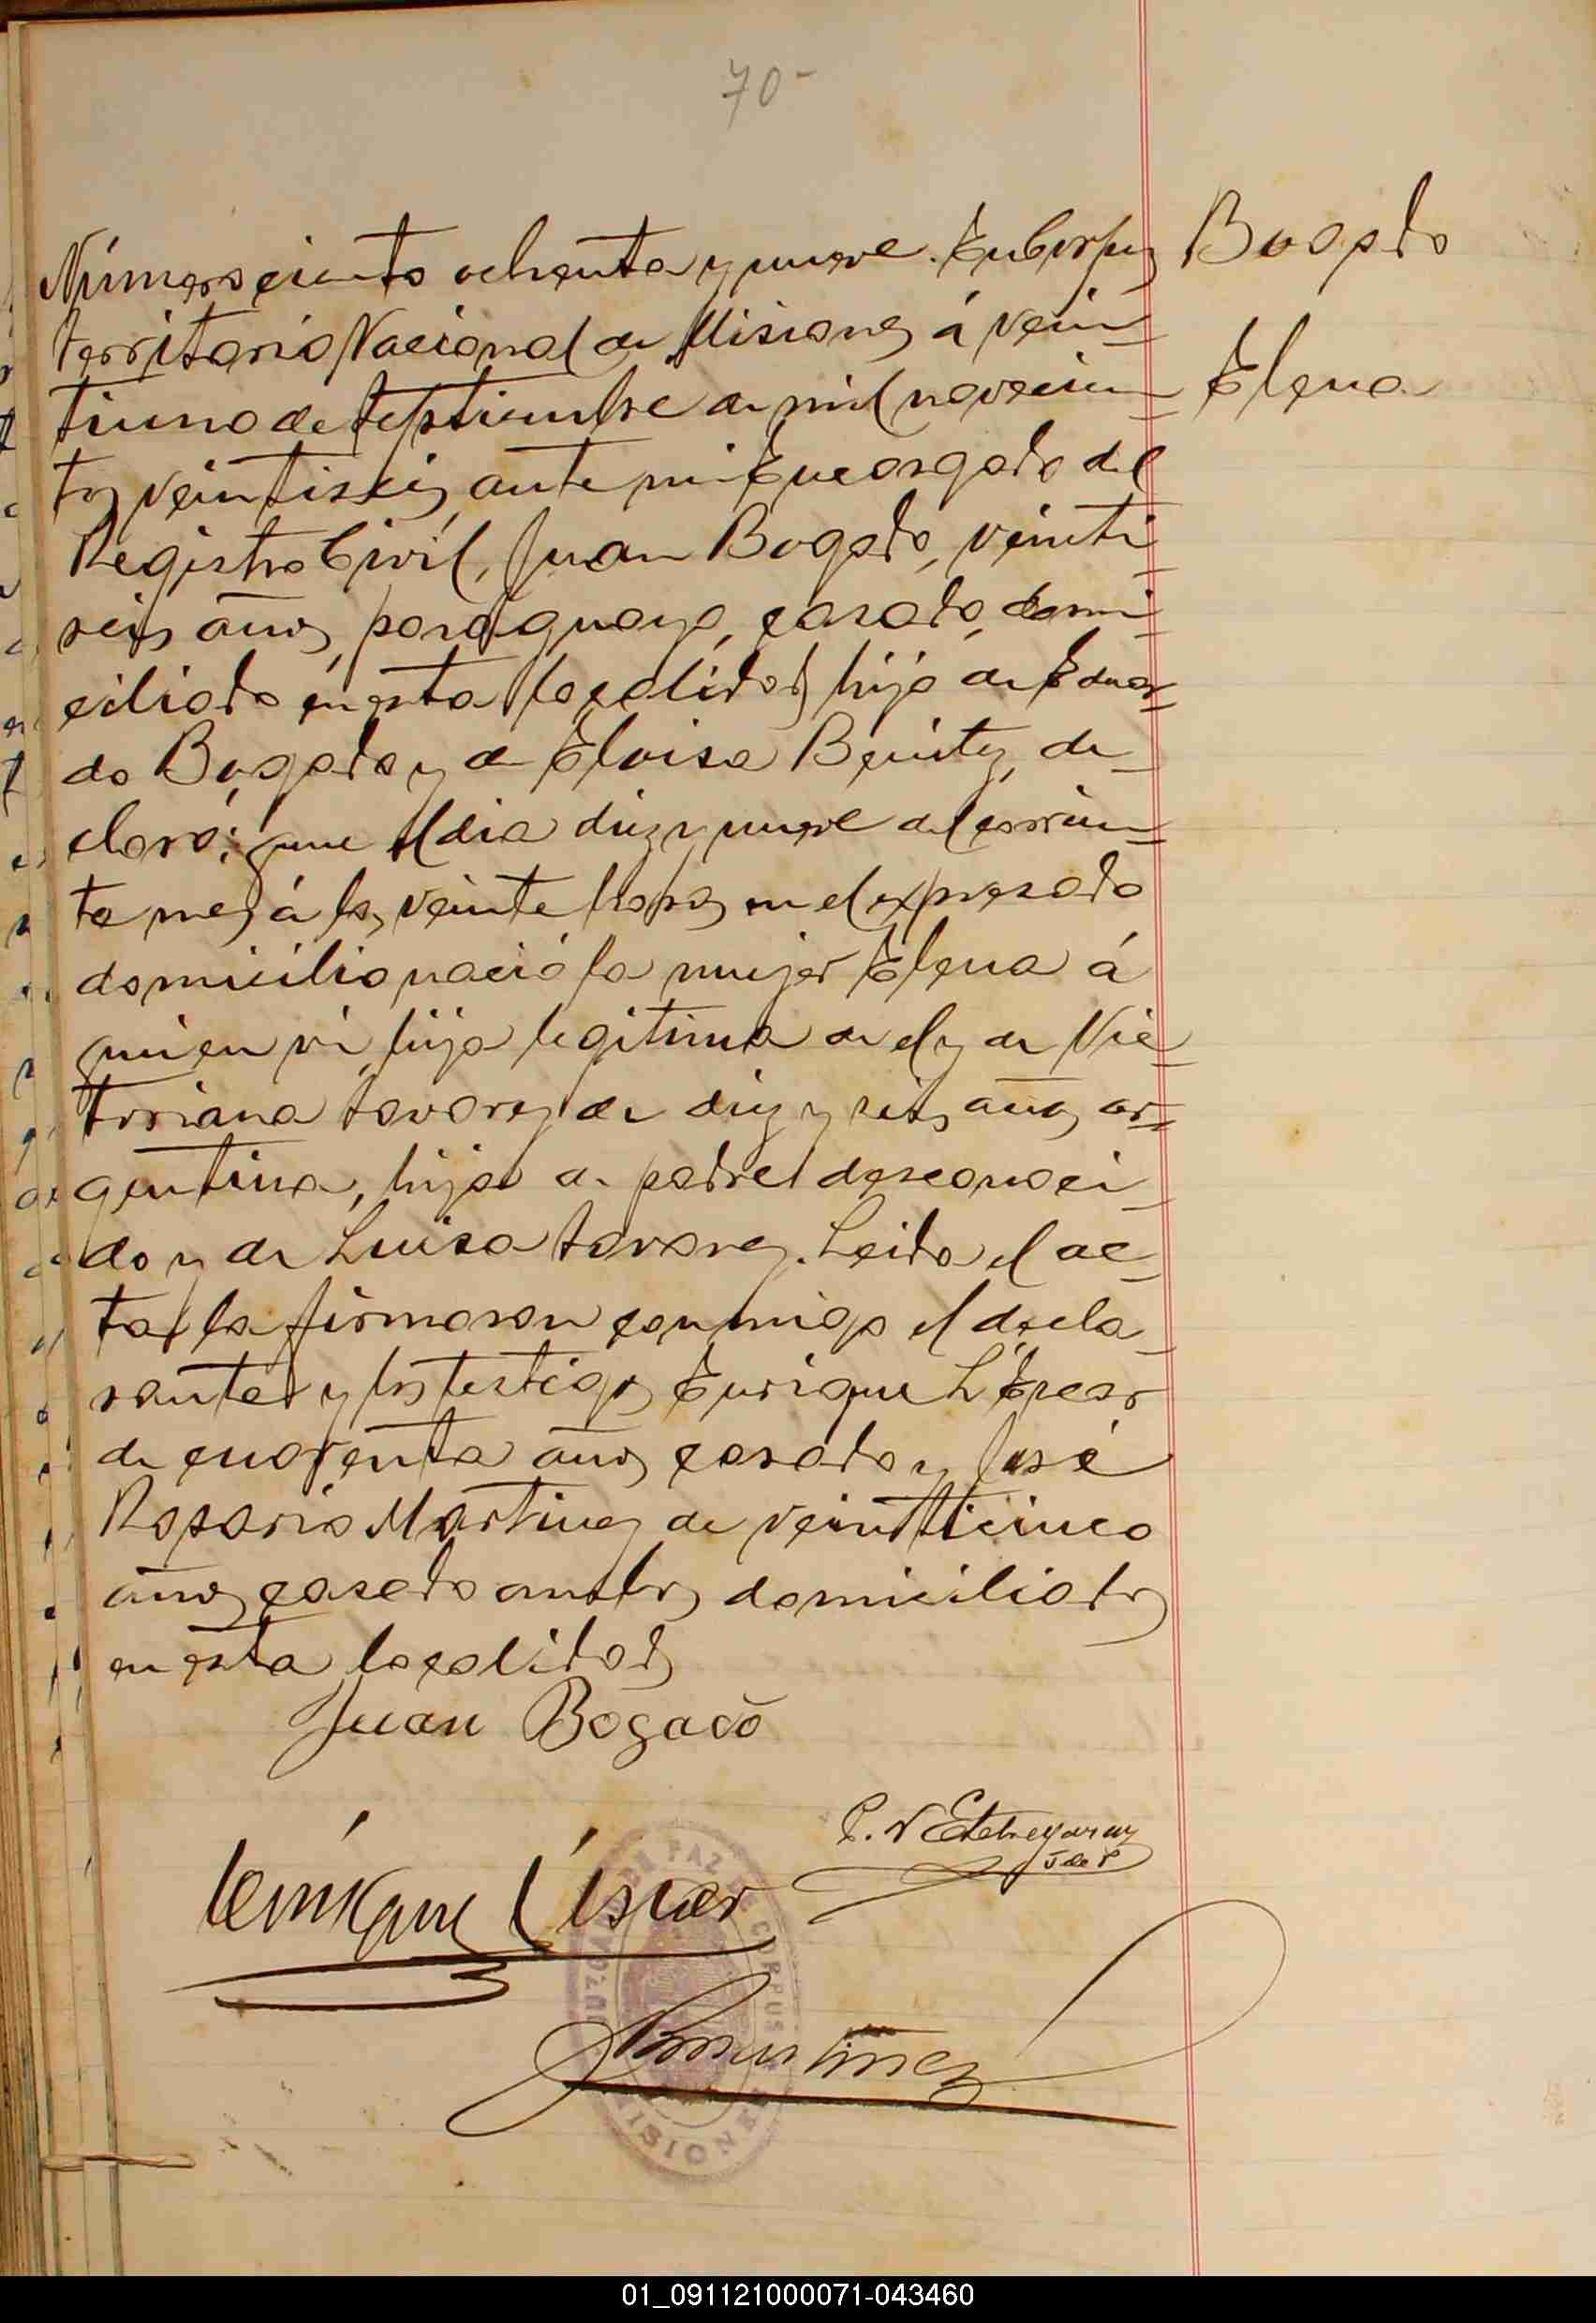 70-
Bogado
Elena
Número ciento ochenta y nueve. En Corpus
territorio Nacional de Misiones á vein
tiuno de Septiembre de mil novecien
tos veintiseis, ante mi Encargado del
Registro Civil, Juan Bogado, veinti
seis años, paraguayo, casado, domi
ciliado en esta localidad, hijo de Eduar
do Bogado y de Eloisa Benitez, de
claró: que el dia diez y nueve del corrien
te mes á las veinte horas en el expresado
domicilio nació la mujer Elena á
quien vi, hija legitima de el y de Vic
toriana Tavarez de diez y seis años, ar
gentina, hija de padre desconoci
do y de Luisa Tavarez. Leida el ac
ta la firmaron conmigo el decla
rante y los testigos Enrique L
de cuarenta años, casado y José
Rosario Martinez de veinticinco
años, casado ambos domiciliados
en esta localidad
Juan Bogado
P. N Etchegaray
J de P
Enrique L
Martinez
JUZGADO DE PAZ DE CORPUS
MISIONES
01_091121000071-043460